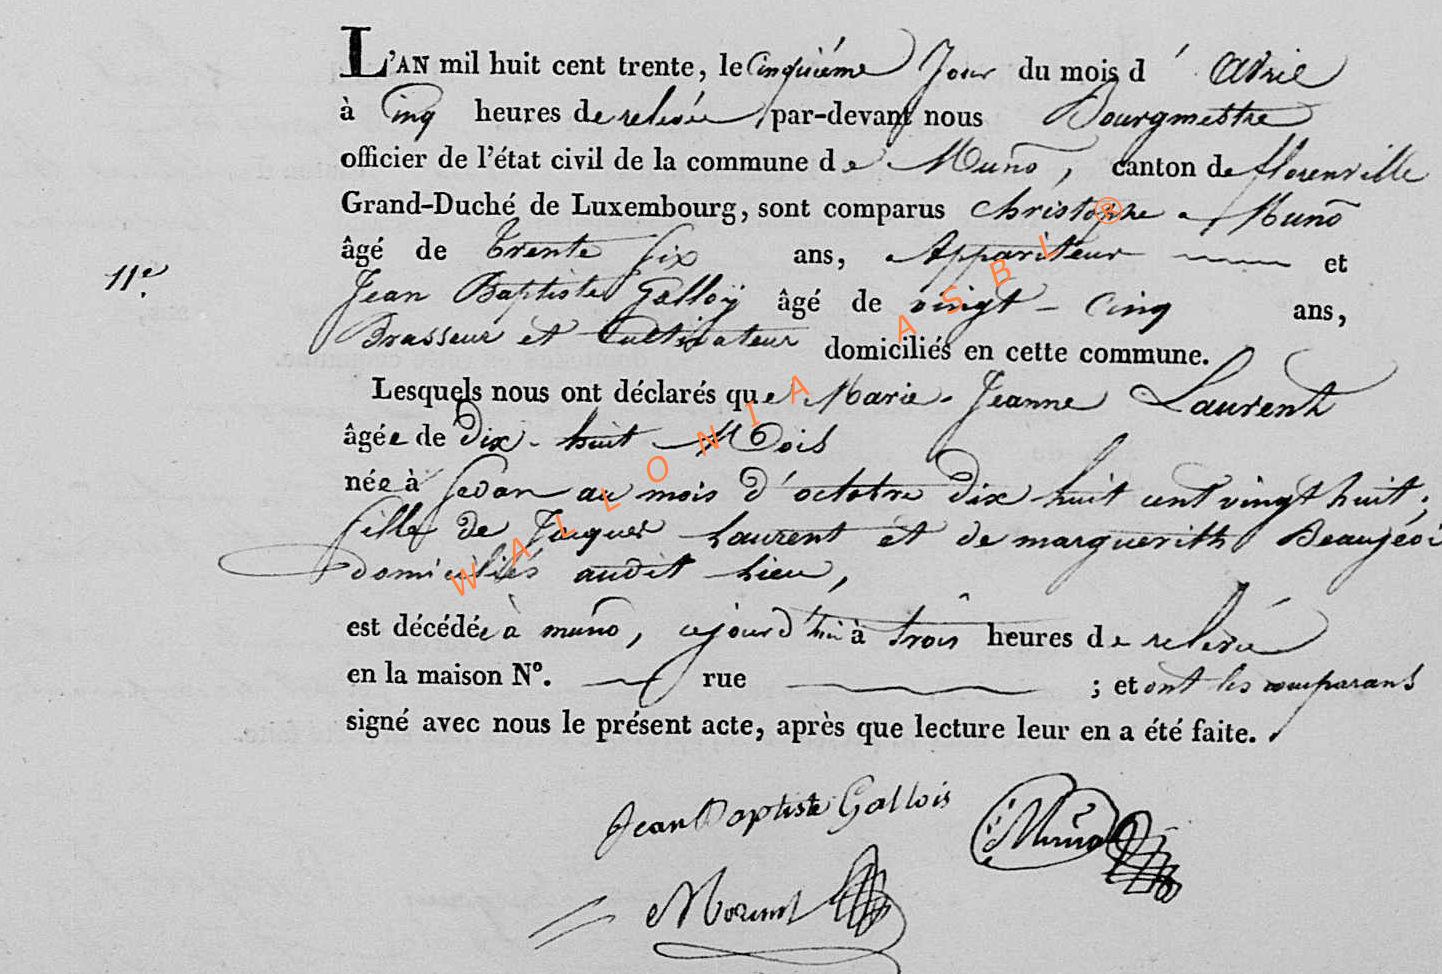 L'AN mil huit cent trente, le Cinquième Jour du mois d' Avril
à Cinq heures de relevée par-devant nous Bourgmestre
officier de l'état civil de la commune de Muno, canton de florenville
Grand-Duché de Luxembourg, sont comparus Christophe Muno
âgé de Trente Six ans, Appariteur et
11e.
Jean Baptiste Galloÿ âgé de vingt-Cinq ans,
Brasseur et Cultivateur domiciliés en cette commune.
Lesquels nous ont déclarés que Marie-Jeanne Laurent
âgée de Dix-huit Mois
née à Sedan au mois d'octobre dix huit cent vingt huit,
fille de Jaques Laurent et de marguerith
domiciliés audit Lieu,
est décédée à muno, cejourd'hui à trois heures de relevée
en la maison N°. rue ; et ont les comparans
signé avec nous le présent acte, après que lecture leur en a été faite.
Jean Baptiste Gallois
Muno
WALLONIA ASBL ®